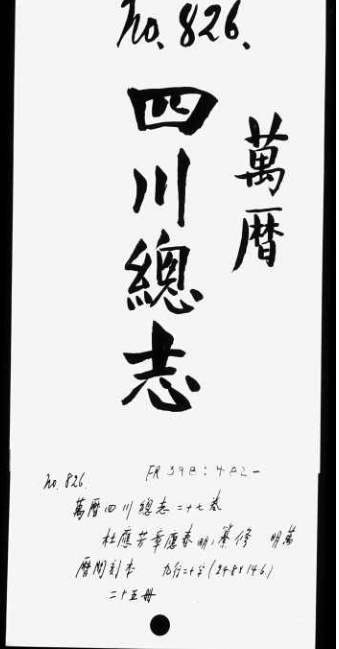 no. 826.
萬曆
四川總志
no. 826.
FR 398:482-
萬曆四川總志 二十七卷
杜應芳章應春明纂修 明萬
曆間刻本 九行二十字(24.8×14.6)
二十五冊